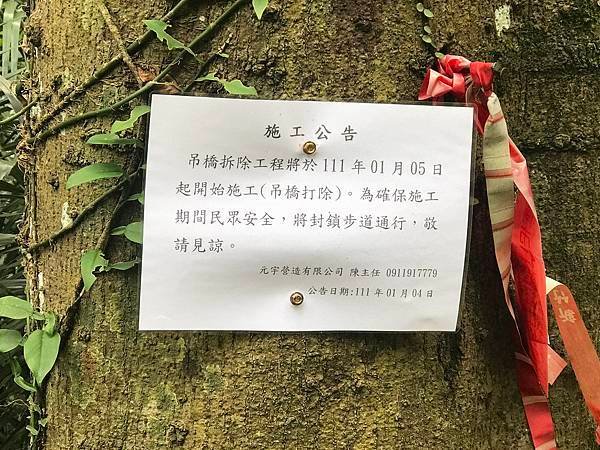 施工公告
吊橋拆除工程將於 111 年 01 月 05 日
起開始施工(吊橋打除)。為確保施工
期間民眾安全，將封鎖步道通行，敬
請見諒。
元宇營造有限公司 陳主任 0911917779
公告日期:111 年 01 月 04 日
新竹